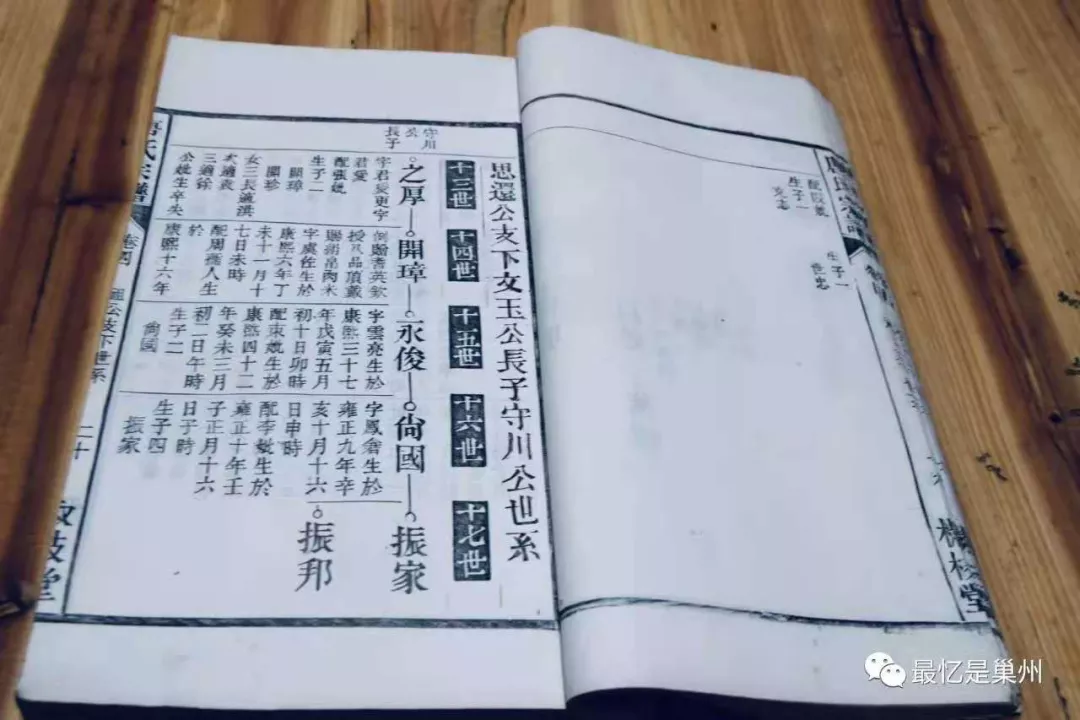 配
生子一
克志
生子一
世忠
思還公支下文玉公長子守川公世系
十三世
十四世
十五世
十六世
十七世
守川
公
長子
之厚
開璋
永俊
尙國
振家
振邦
字君
君愛
配張氏
生子二
開璋
開珍
女三長適洪
次適袁
三適徐
公妣生卒失
例贈耆英欽
授八品頂戴
賜絹帛肉米
字虞佐生於
康熙六年丁
未十一月十
七日未時
配周孺人生
於
康熙十六年
字雲亮生於
康熙三十七
年戊寅五月
初十日卯時
配東妣生於
康熙四十二
年癸未三月
初二日午時
生子二
尙國
字鳳
生於
雍正九年辛
亥十月十六
日申時
配李妣生於
雍正十年壬
子正月十六
日子時
生子四
振家
氏宗譜
卷四
公支下世系
二十
堂
最忆是巢州